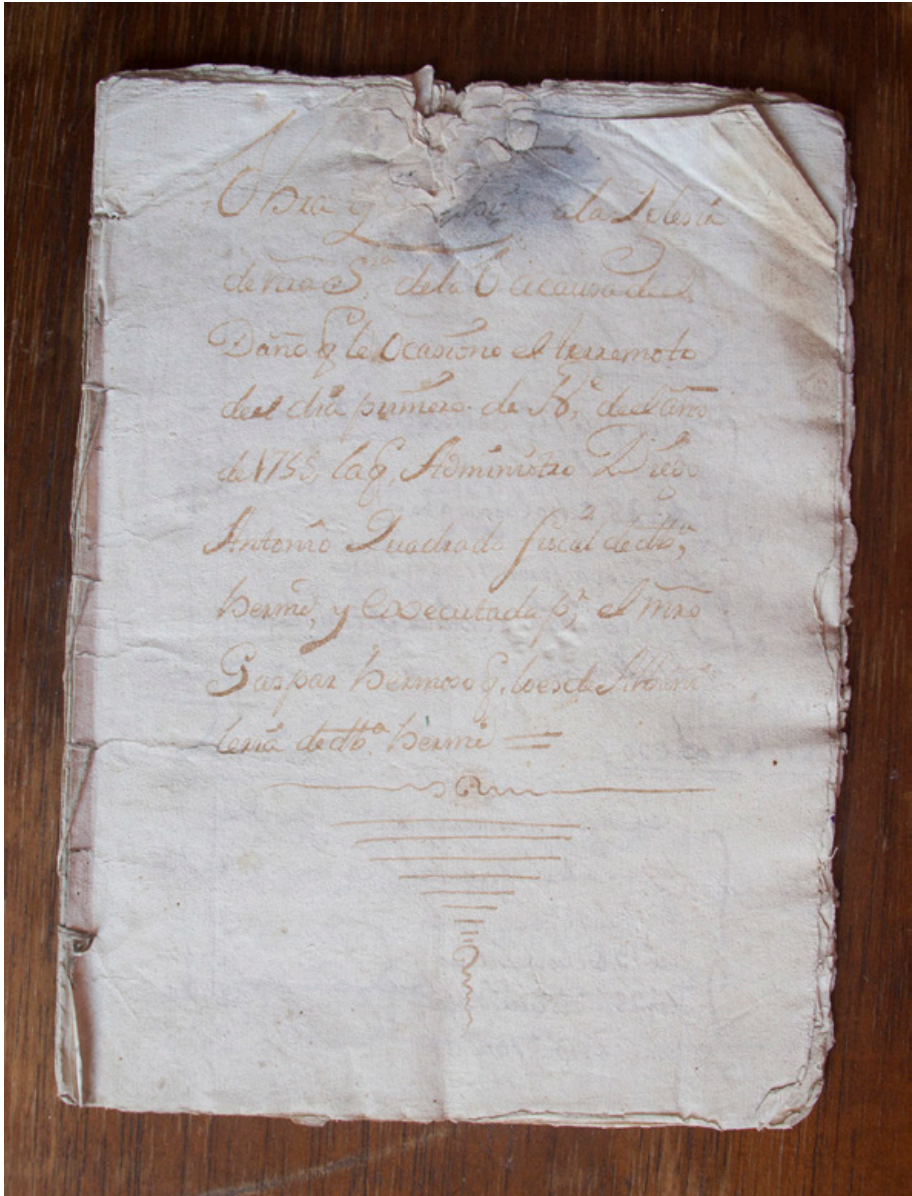 Obra q̃ a la Iglesia
de nrã Sra. de la O a causa del
Daño q̃ le Ocasiono el terremoto
del dia primero de Nre. del año
de 1755, la q̃, Administro Diego
Antonio Quadrado fiscal de dha.
hermd, y execcutada pr, el Mro
Gaspar hermoso q̃, lo es de Albañi
leria de dha. hermd =